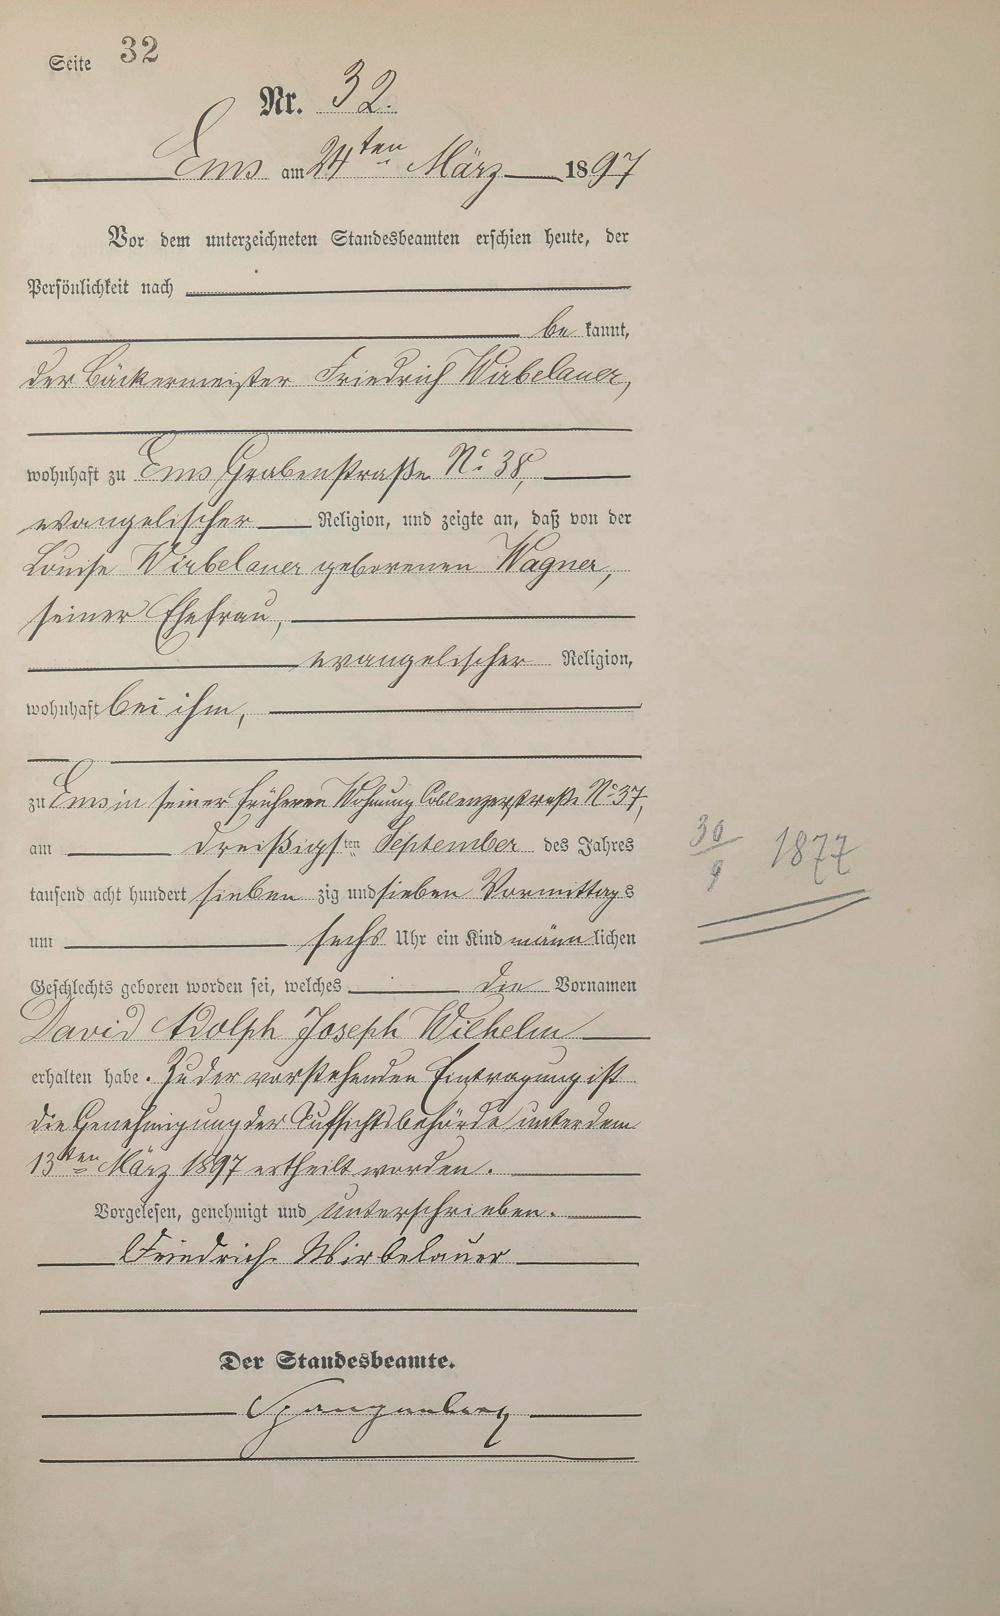 Seite 32
Nr. 32.
Ems am 24ten März 1897
Vor dem unterzeichneten Standesbeamten erschien heute, der
Persönlichkeit nach
be kannt,
der Bäckermeister Friedrich Wirbelauer,
wohnhaft zu Ems Grabenstraße No 38,
evangelischer Religion, und zeigte an, daß von der
Louise Wirbelauer geborenen Wagner,
seiner Ehefrau,
evangelischer Religion,
wohnhaft bei ihm,
zu Ems in seiner früheren Wohnung Coblenzerstraße No 37,
am dreißigsten September des Jahres
tausend acht hundert sieben zig und sieben Vormittags
um sechs Uhr ein Kind männlichen
Geschlechts geboren worden sei, welches die Vornamen
David Adolph Joseph Wilhelm
erhalten habe. Zu der vorstehenden Eintragung ist
die Genehmigung der Aufsichtsbehörde unter dem
13ten März 1897 ertheilt worden.
Vorgelesen, genehmigt und unterschrieben.
Friedrich Wirbelauer
Der Standesbeamte.
Spangenberg
30/9 1877